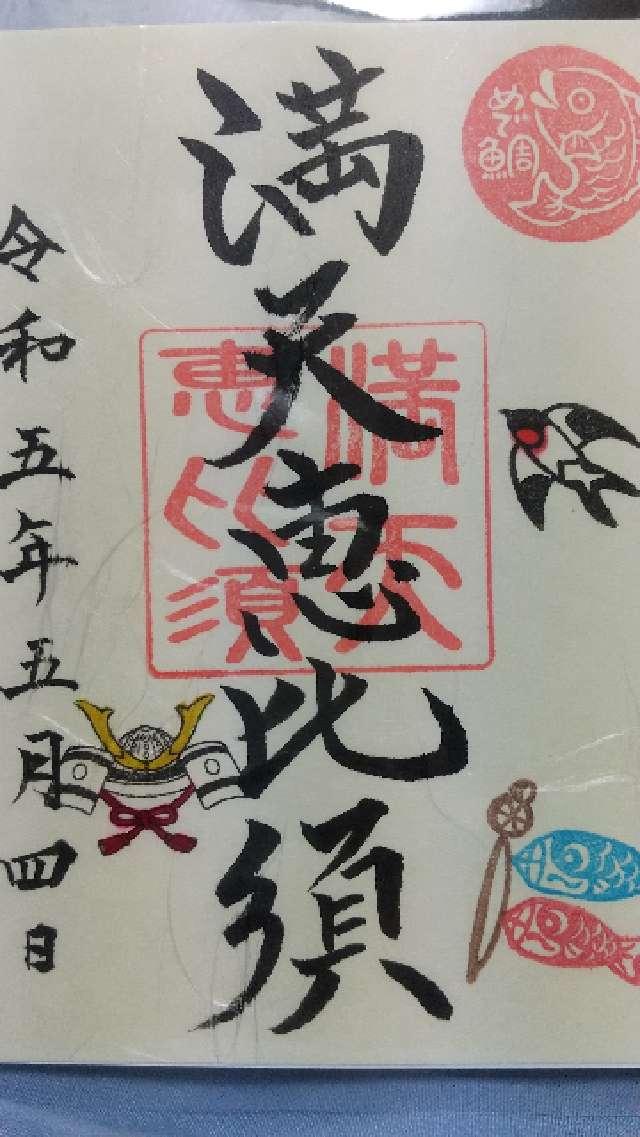 めで鯛
満天恵比須
満天
恵比須
令和五年五月四日